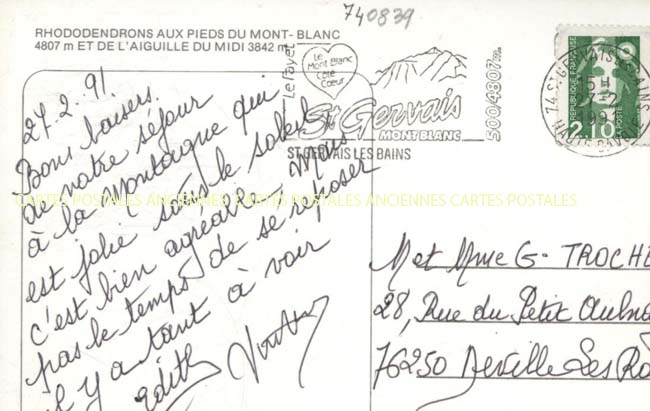 740839
RHODODENDRONS AUX PIEDS DU MONT-BLANC
4807 m ET DE L'AIGUILLE DU MIDI 3842 m
Le Fayet
Le
Mont Blanc
Côté
Cœur
St Gervais
MONT BLANC
500/4807m.
ST GERVAIS LES BAINS
74 ST GERVAIS LES BAINS
15 H
1991
HAUTE SAVOIE
REPUBLIQUE FRANCAISE
LA POSTE
2,10
27.2.91.
Bons baisers
de notre séjour
à la Montagne qui
est jolie sous le soleil
c'est bien agréable. Mais
pas le temps de se reposer
il y a tant à voir
Edith
CARTES POSTALES ANCIENNES CARTES POSTALES ANCIENNES CARTES POSTALES
M et Mme G. TROCHE
28, Rue du Petit Auln
76250 Deville Les Ro